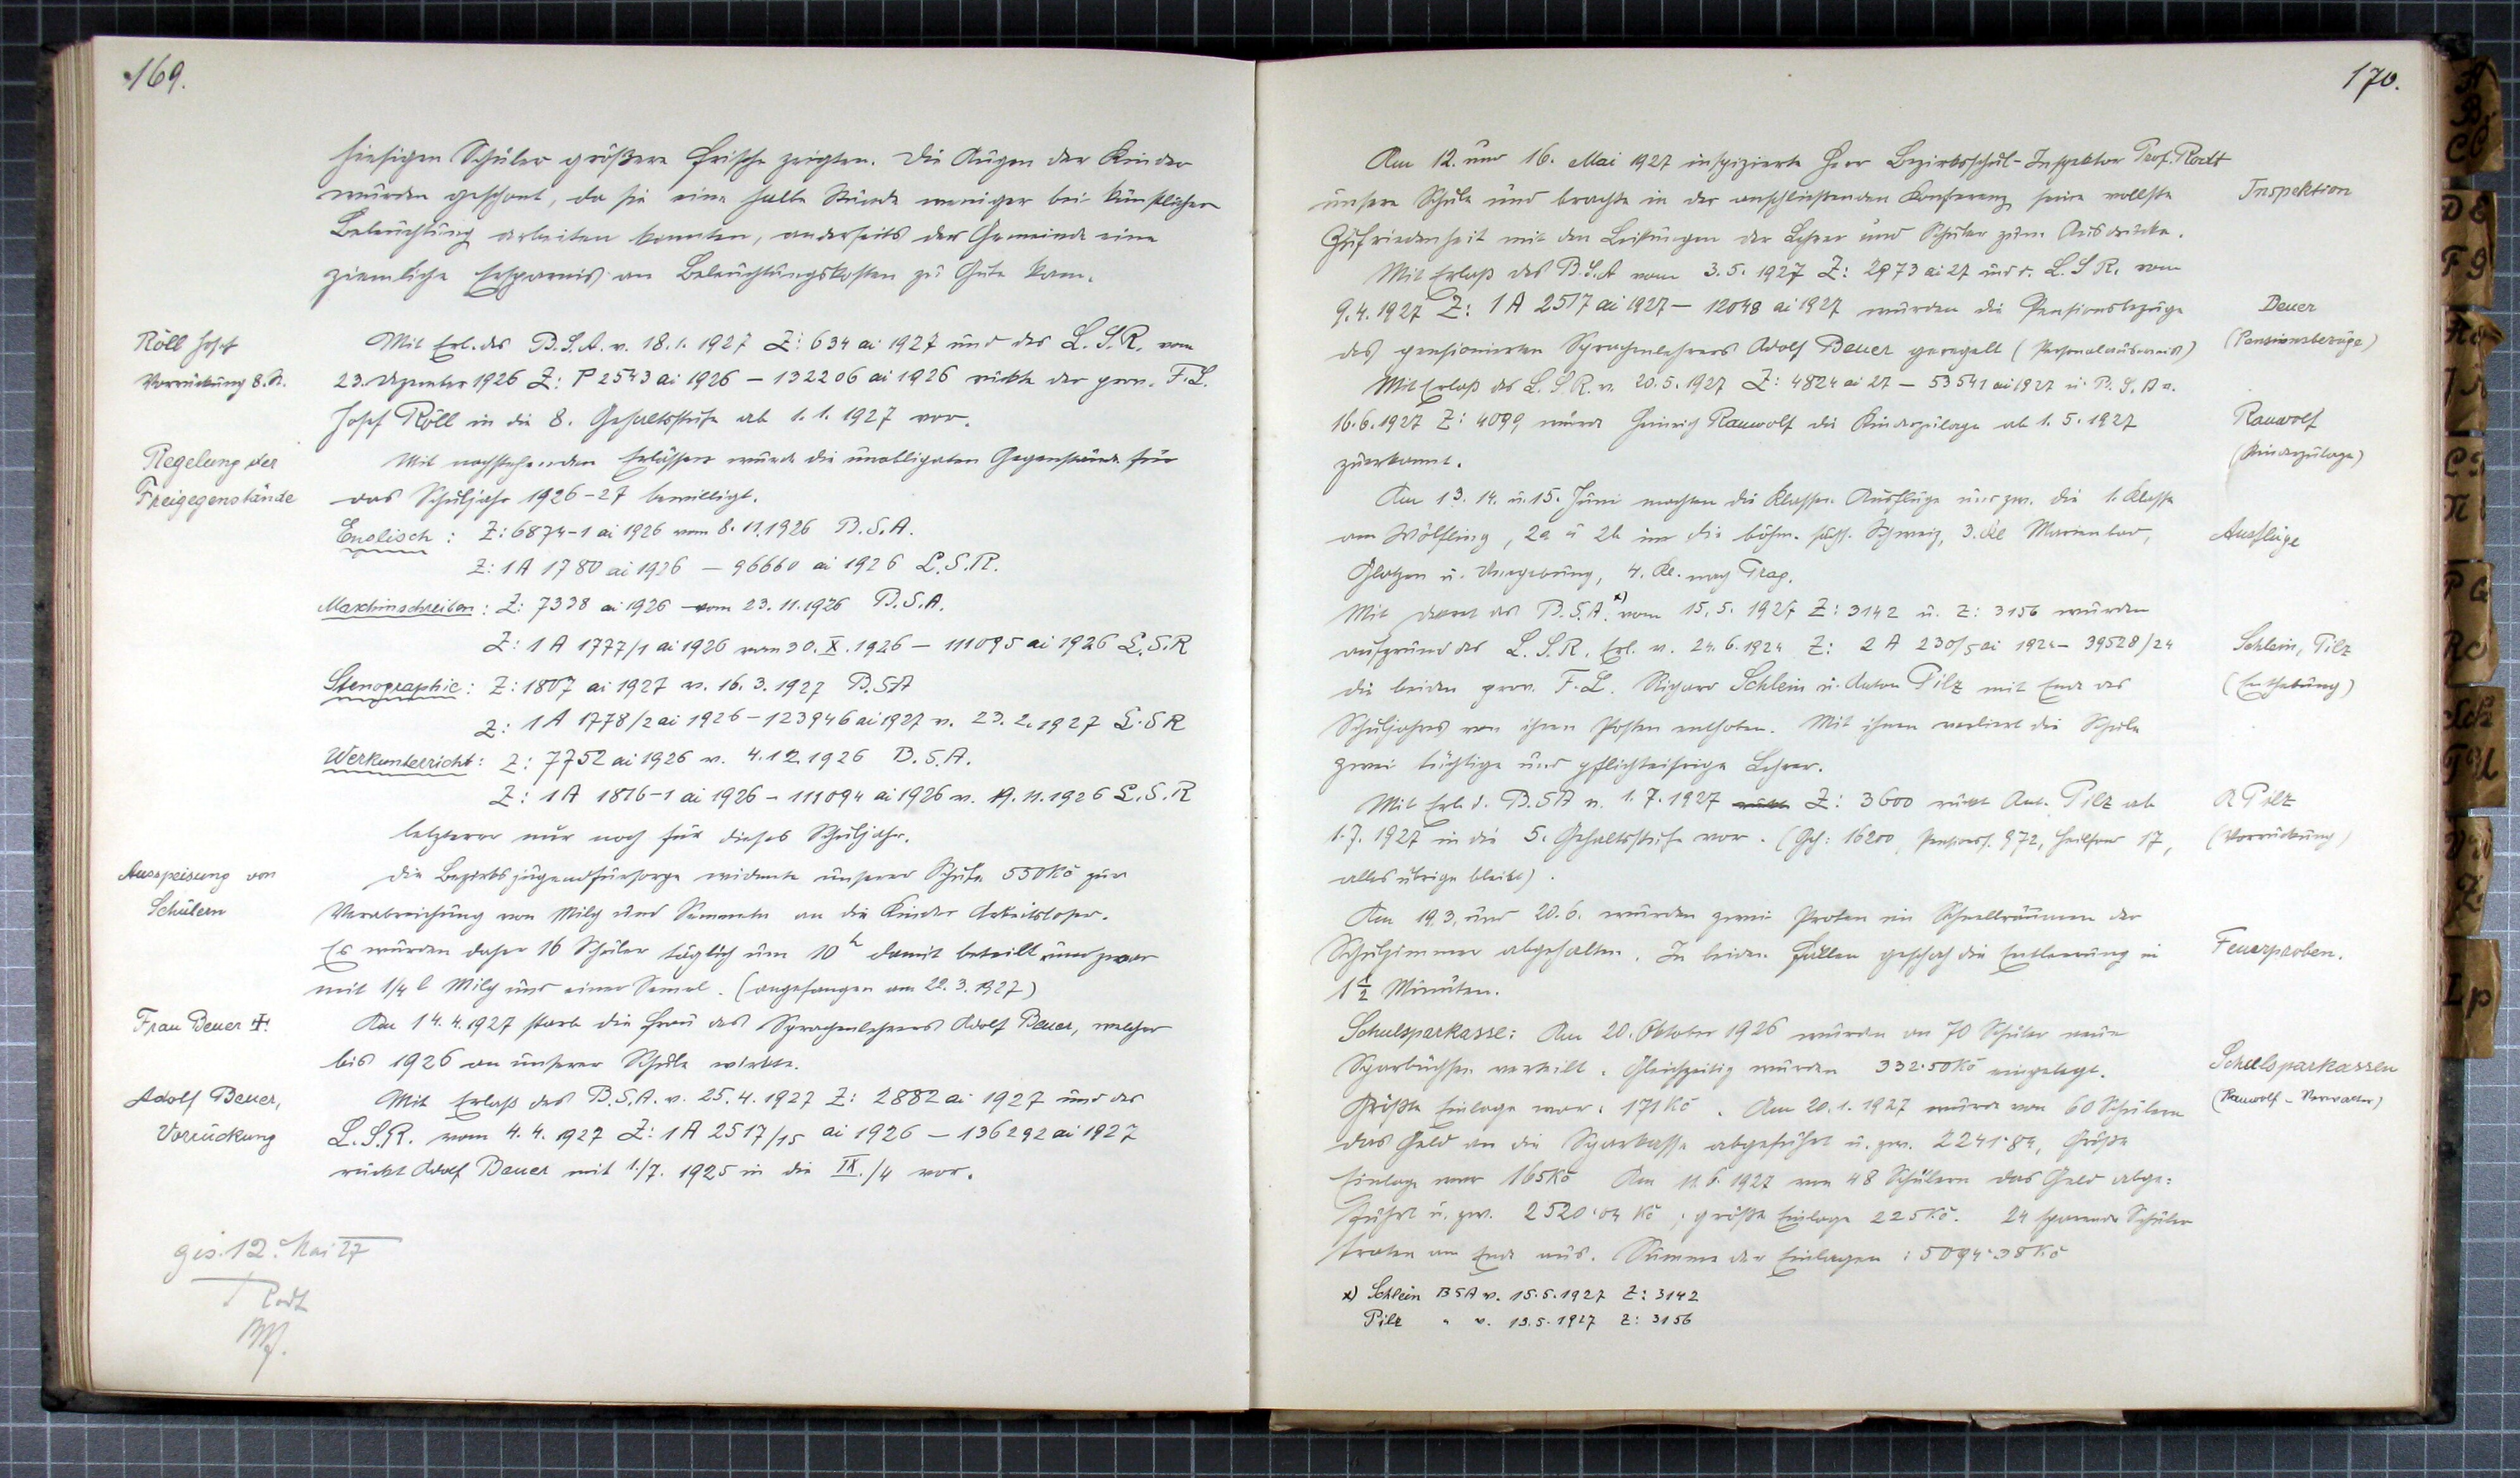 169.
hiesigen Schüler größere Frische zeigten. Die Augen der Kinder
wurden geschont, da sie eine halbe Stunde weniger bei künstlicher
Beleuchtung arbeiten konnten, anderseits der Gemeinde eine
ziemliche Ersparnis an Beleuchtungskosten zu Gute kam.
Röll Josef
Vorrückung 8. St.
Mit Erl. des B.S.A. v. 18.1.1927 Z: 634 ai 1927 und des L.S.R. vom
23. Dezember 1926 Z: P 2543 ai 1926 – 132206 ai 1926 rückte der prov. F.L.
Josef Röll in die 8. Gehaltsstufe ab 1.1.1927 vor.
Regelung der
Freigegenstände
Mit nachstehenden Erlässen wurde die unobligaten Gegenstände für
das Schuljahr 1926–27 bewilligt.
Englisch: Z: 6874-1 ai 1926 vom 8.11.1926 B.S.A.
Z: 1A 1780 ai 1926 – 96660 ai 1926 L.S.R.
Maschinschreiben: Z: 7338 ai 1926 – vom 23.11.1926 B.S.A.
Z: 1A 1777/1 ai 1926 vom 30. X. 1926 – 111095 ai 1926 L.S.R
Stenographie: Z: 1807 ai 1927 v. 16.3.1927 B.SA
Z: 1A 1778/2 ai 1926 – 123946 ai 1927 v. 23.2.1927 L.SR
Werkunterricht: Z: 7752 ai 1926 v. 4.12.1926 B.S.A.
Z: 1A 1816-1 ai 1926 – 111094 ai 1926 v. 19.11.1926 L.S.R
letzterer nur noch für dieses Schuljahr.
Ausspeisung von
Schülern
Die Bezirksjugendfürsorge widmete unserer Schule 550 Kč zur
Verabreichung von Milch und Semmeln an die Kinder Arbeitsloser.
Es wurden daher 16 Schüler täglich um 10h damit beteilt und zwar
mit 1/4 l Milch und einer Semel. (angefangen am 22.3.1927)
Frau Beuer †.
Am 14.4.1927 starb die Frau des Sprachenlehrers Adolf Beuer, welcher
bis 1926 an unserer Schule wirkte.
Adolf Beuer,
Vorrückung
Mit Erlaß des B.S.A. v. 25.4.1927 Z: 2882 ai 1927 und des
L.S.R. vom 4.4.1927 Z: 1A 2517/15 ai 1926 – 136292 ai 1927
rückt Adolf Beuer mit 1./7. 1925 in die IX./4 vor.
ges. 12. Mai 27
170.
Am 12. und 16. Mai 1927 inspizierte Herr Bezirksschul-Inspektor Prof. Rodt
unsere Schule und brachte in der anschließenden Konferenz seine vollste
Zufriedenheit mit den Leistungen der Lehrer und Schüler zum Ausdrucke.
Inspektion
Mit Erlaß des B.S.A vom 3.5.1927 Z: 2973 ai 27 und d. L.S.R. vom
9.4.1927 Z: 1A 2517 ai 1927 – 12048 ai 1927 wurden die Pensionsbezüge
des pensionierten Sprachenlehrers Adolf Beuer geregelt (Personalausweis)
Beuer
(Pensionsbezüge)
Mit Erlaß des L.S.R. v. 20.5.1927 Z: 4824 ai 27 – 53541 ai 1927 u. B.S.A v.
16.6.1927 Z: 4099 wurde Heinrich Rauwolf die Kinderzulage ab 1.5.1927
zuerkannt.
Rauwolf
(Kinderzulage)
Am 13. 14. u. 15. Juni machten die Klassen Ausflüge und zw. die 1. Klasse
am Wölfling, 2a u 2b in die böhm. sächs. Schweiz, 3. Kl Marienbad,
Glatzen u. Umgebung, 4. Kl. nach Prag.
Ausflüge
Mit Dekret des B.S.A. x) vom 15.5.1927 Z: 3142 u. Z: 3156 wurden
aufgrund des L.S.R. Erl. v. 24.6.1924 Z: 2A 230/5 ai 1924 – 39528/24
die beiden prov. F.L. Richard Schlein u. Anton Pilz mit Ende des
Schuljahres von ihren Posten enthoben. Mit ihnen verliert die Schule
zwei tüchtige und pflichteifrige Lehrer.
Schlein, Pilz
(Enthebung)
Mit Erl. d. B.SA v. 1.7.1927 Z: 3600 rückt Ant. Pilz ab
1.7.1927 in die 5. Gehaltsstufe vor. (Geh: 16200, Pensionsf. 972, Heilfond 17,
alles übrige bleibt).
A Pilz
(Vorrückung)
Am 19.3. und 20.6. wurden zwei Proben im Schnellräumen der
Schulzimmer abgehalten. In beiden Fällen geschah die Entleerung in
1 1/2 Minuten.
Feuerproben.
Schulsparkasse: Am 20. Oktober 1926 wurden an 70 Schüler neue
Sparbüchsen verteilt. Gleichzeitig wurden 332·50 Kč eingelegt.
Größte Einlage war: 171 Kč. Am 20.1.1927 wurde von 60 Schülern
das Geld an die Sparkasse abgeführt u. zw. 2241·84, Größte
Einlage war 165 Kč Am 11.6.1927 von 48 Schülern das Geld abge=
führt u. zw. 2520·04 Kč, größte Einlage 225 Kč. 24 sparende Schüler
traten am Ende aus. Summe der Einlagen: 5094·38 Kč
Schulsparkassen
(Rauwolf – Verwalter)
x) Schlein BSA v. 15.5.1927 Z: 3142
Pilz " v. 13.5.1927 Z: 3156